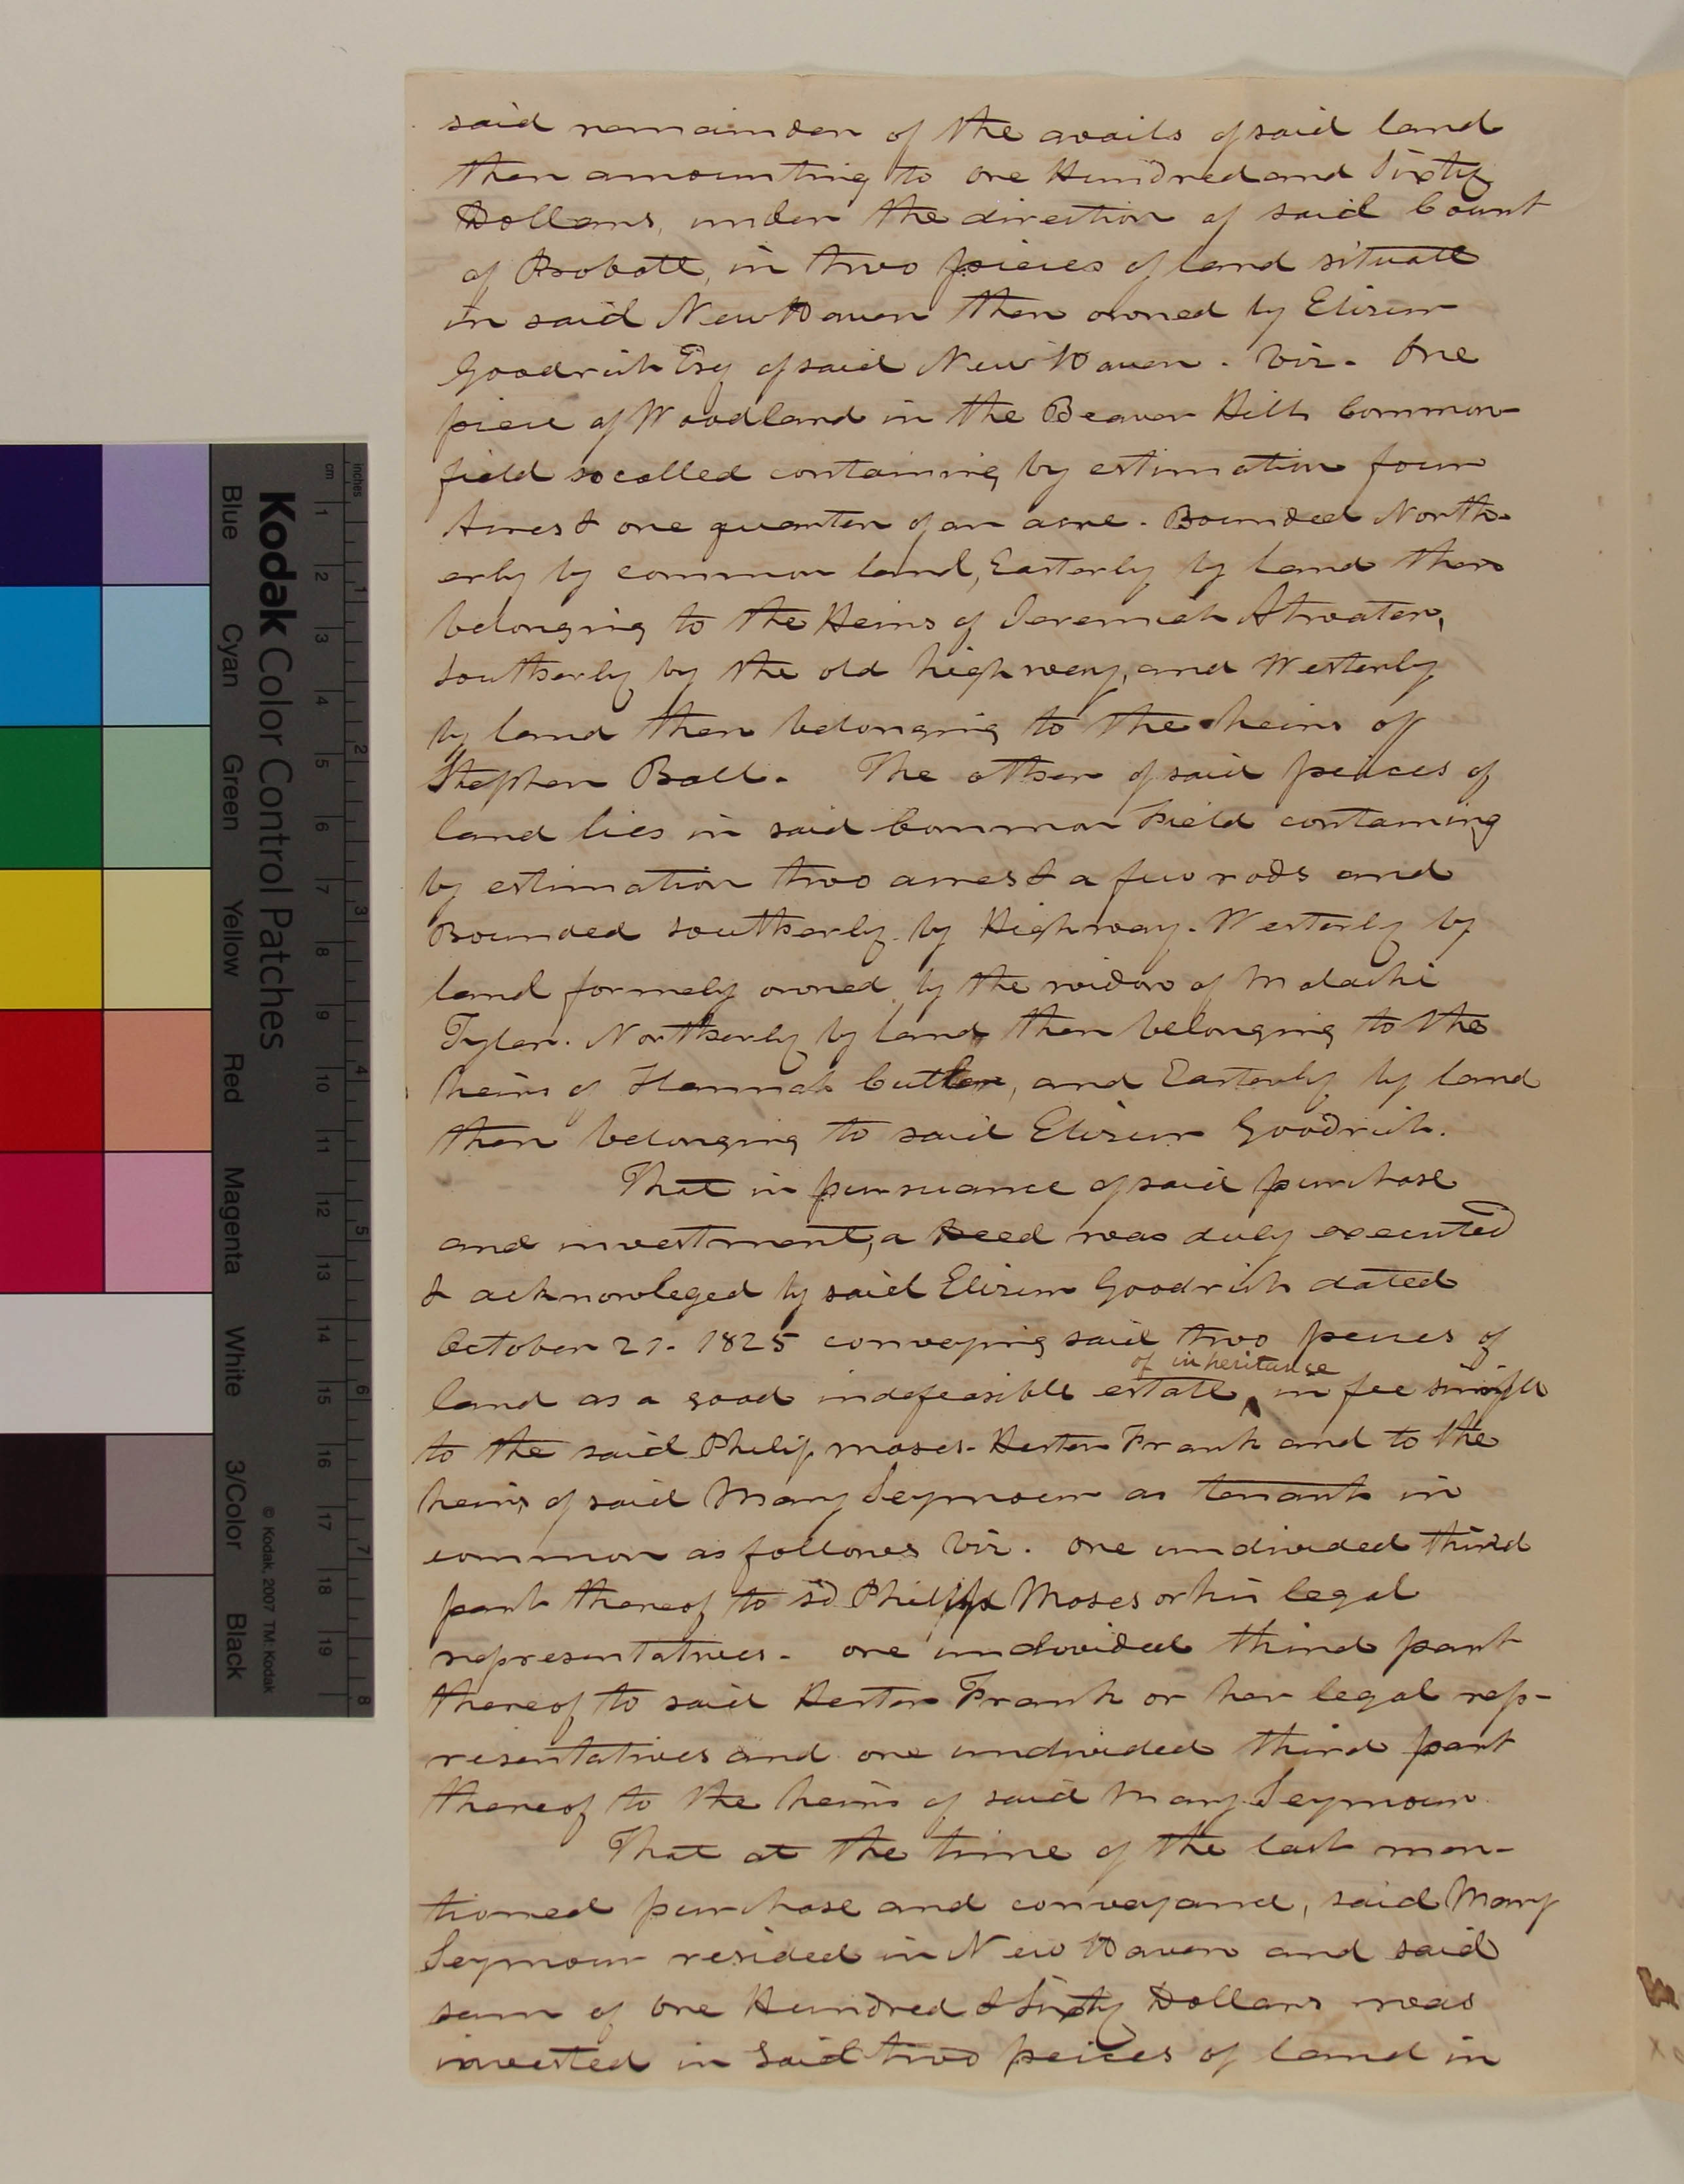 said remainder of the avails of said land
then amounting to one Hundred and Sixty
Dollars, under the direction of said Court
of Probate, in two pieces of land situate
in said New Haven then owned by Elizur
Goodrich Esq of said New Haven. Viz. One
piece of Woodland in the Beaver Hills Common-
field so called containing by estimation four
Acres & one quarter of an acre. Bounded North-
erly by common land, Easterly by land then
belonging to the Heirs of Jeremiah Atwater,
Southerly by the old highway, and Westerly
by land then belonging to the heirs of
Stephen Ball. The other of said peaces of
land lies in said Common Field containing
by estimation two acres & a few rods and
Bounded Southerly by Highway. Westerly by
land formely owned by the widow of Malachi
Tyler. Northerly by land then belonging to the
heirs of Hannah Cutler, and Easterly by land
then belonging to said Elizur Goodrich.
That in pursuance of said purchase
and investment, a Deed was duly executed
& acknowleged by said Elizur Goodrich dated
October 21. 1825 conveying said two peices of
of inheritance
land as a good indefeasible estate ‸ in fee simple
to the said Philip Moses. Hester Frank and to the
heirs of said Mary Seymour as tenants in
common as follows Viz. one undivided third
part thereof to sd Philip Moses or his legal
representatives. one undivided third part
thereof to said Hester Frank or her legal rep-
resentatives and one undivided third part
thereof to the heirs of said Mary Seymour
That at the time of the last men-
tioned purchase and conveyance, said Mary
Seymour resided in New Haven and said
sum of One Hundred & Sixty Dollars was
invested in said two peices of land in
inches
cm
1 2 3 4 5 6 7 8
1 2 3 4 5 6 7 8 9 10 11 12 13 14 15 16 17 18 19
Kodak Color Control Patches
© Kodak, 2007 TM: Kodak
Blue Cyan Green Yellow Red Magenta White 3/Color Black